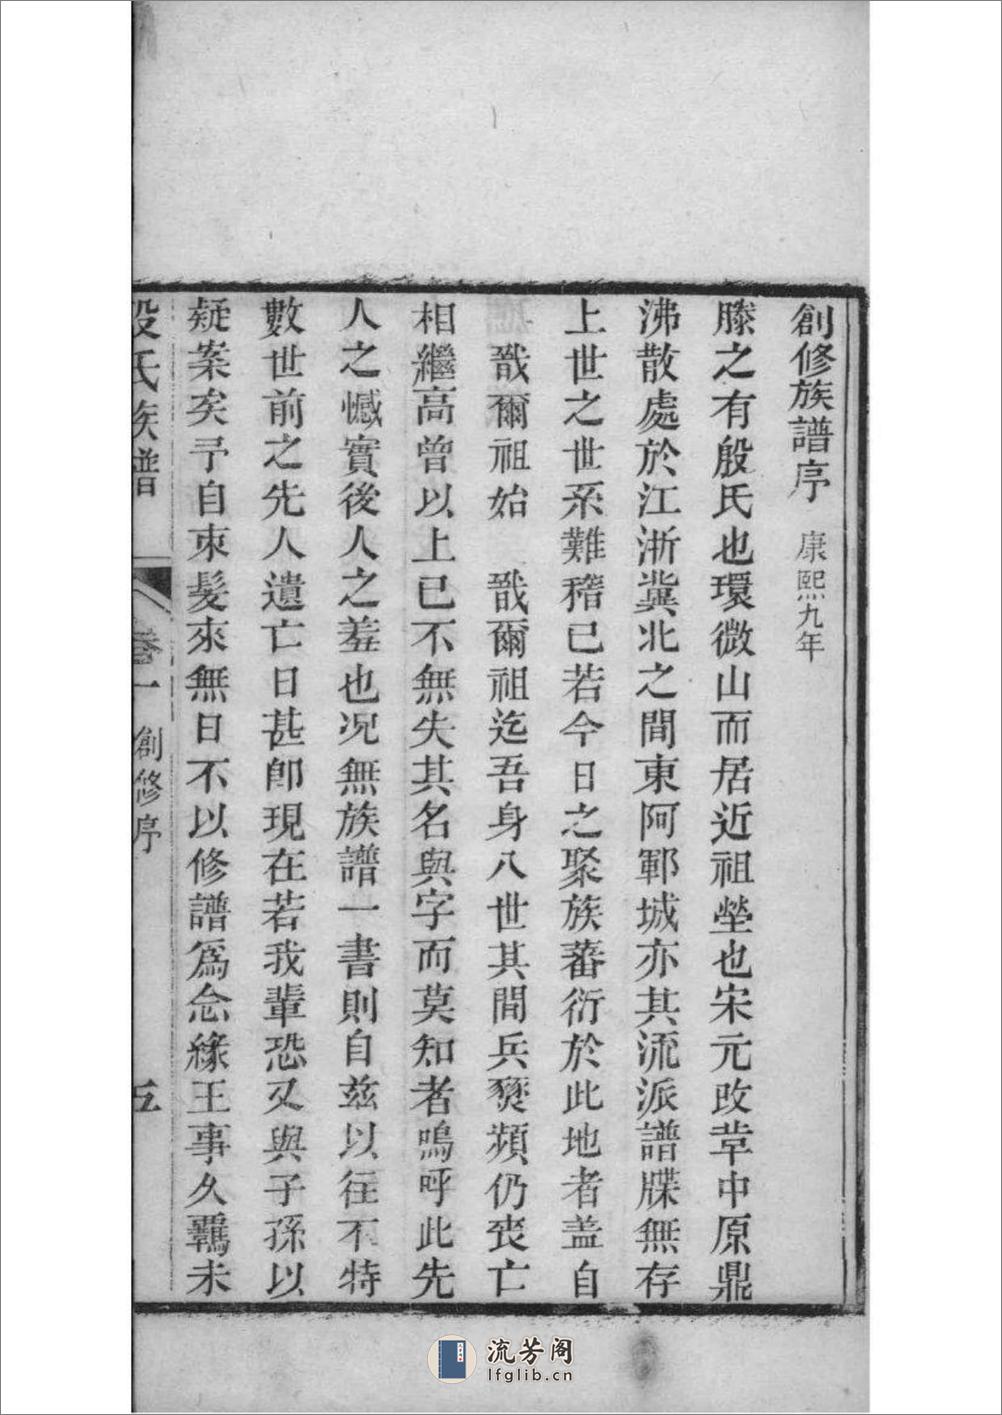 創修族譜序 康熙九年
滕之有殷氏也環微山而居近祖塋也宋元改革中原鼎
沸散處於江浙冀北之間東阿鄆城亦其流派譜牒無存
上世之世系難稽已若今日之聚族蕃衍於此地者盖自
戩爾祖始 戩爾祖迄吾身八世其間兵燹頻仍喪亡
相繼高曾以上已不無失其名與字而莫知者嗚呼此先
人之憾實後人之羞也况無族譜一書則自茲以往不特
數世前之先人遺亡日甚卽現在若我輩恐又與子孫以
疑案矣予自束髮來無日不以修譜爲念緣王事久羈未
殷氏族譜 卷一 創修序 五
流芳阁
lfglib.cn